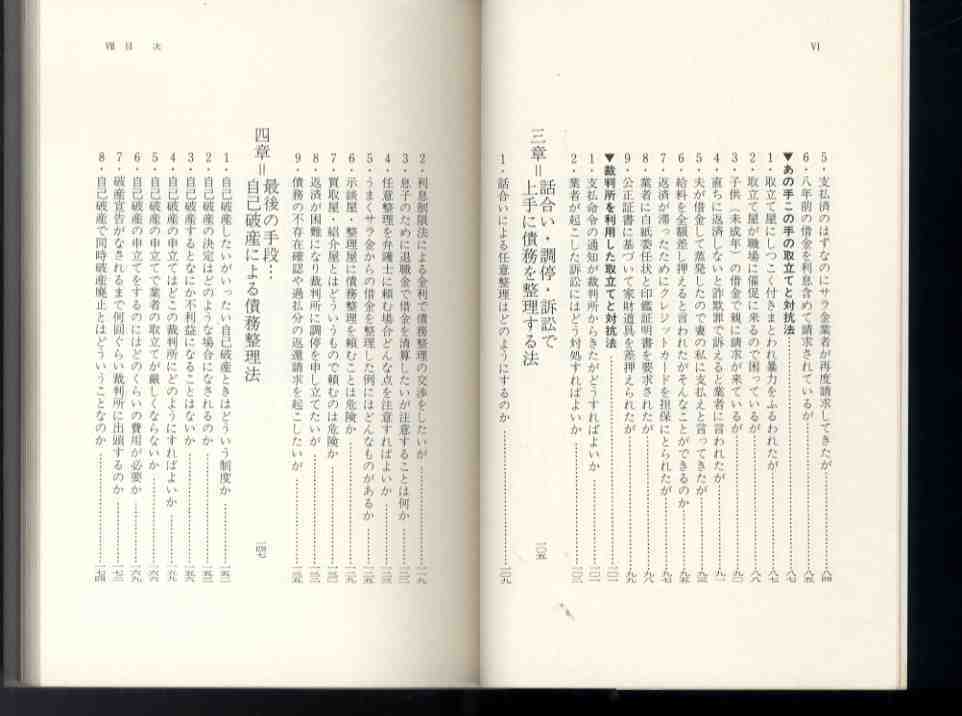 Ⅵ
5・支払済のはずなのにサラ金業者が再度請求してきたが……八四
6・八年前の借金を利息含めて請求されているが……八五
▼あの手この手の取立てと対抗法……八七
1・取立て屋にしつこく付きまとわれ暴力をふるわれたが……八七
2・取立て屋が職場に催促に来るので困っている……八八
3・子供（未成年）の借金で親に請求が来ているが……九〇
4・直ちに返済しないと詐欺罪で訴えると業者に言われたが……九一
5・夫が借金して蒸発したので妻の私に支払えと言ってきたが……九三
6・給料を全額差し押えると言われたがそんなことができるのか……九五
7・返済が滞ったためにクレジットカードを担保にとられたが……九七
8・業者に白紙委任状と印鑑証明書を要求されたが……九八
9・公正証書に基づいて家財道具を差押えられたが……九九
▼裁判所を利用した取立てと対抗法……一〇一
1・支払命令の通知が裁判所からきたがどうすればよいか……一〇一
2・業者が起こした訴訟にはどう対処すればよいか……一〇三
三章＝話合い・調停・訴訟で
上手に債務を整理する法
一〇五
1・話合いによる任意整理はどのようにするのか……一〇九
Ⅶ 目 次
2・利息制限法による金利で債務整理の交渉をしたいが……一一九
3・息子のために退職金で借金を清算したいが注意することは何か
4・任意整理を弁護士に頼む場合どんな点を注意すればよいか
5・うまくサラ金からの借金を整理した例にはどんなものがあるか
6・示談屋・整理屋に債務整理を頼むことは危険か
7・買取屋・紹介屋とはどういうもので頼むのは危険か
8・返済が困難になり裁判所に調停を申し立てたいが
9・債務の不存在確認や過払分の返還請求を起こしたいが
四章＝最後の手段…
自己破産による債務整理法
一四七
1・自己破産したいがいったい自己破産ときはどういう制度か
2・自己破産の決定はどのような場合になされるのか
3・自己破産するとなにか不利益になることはないか
4・自己破産の申立てはどこの裁判所にどのようにすればよいか
5・自己破産の申立てで業者の取立てが厳しくならないか
6・自己破産の申立てをするのにはどのくらいの費用が必要か
7・破産宣告がなされるまで何回ぐらい裁判所に出頭するのか
8・自己破産で同時破産廃止とはどういうことなのか……一七四